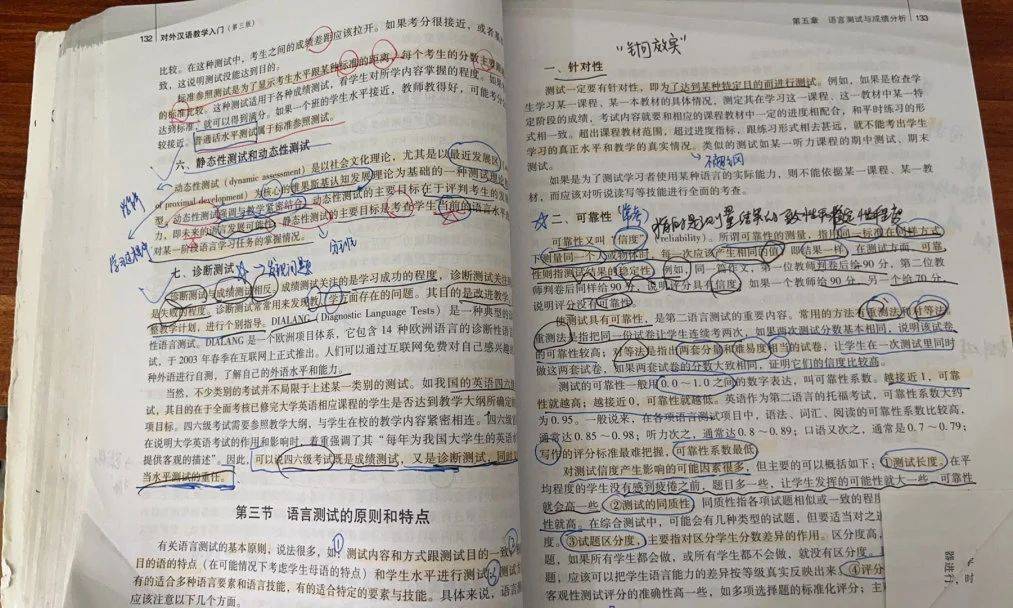 132 对外汉语教学入门（第三版）
比较。在这种测试中，考生之间的成绩差距应该拉开。如果考分很接近，或者
致，这说明测试没能达到目的。
标准参照测试是为了显示考生水平跟某种标准的距离，每个考生的分数主要
的标准比较。这种测试适用于各种成绩测试，看学生对所学内容掌握的程度。如果
达到标准，就可以得到满分。如果一个班的学生水平接近，教师教得好，可能考分
较接近。普通话水平测试属于标准参照测试。
六、静态性测试和动态性测试
动态性测试（dynamic assessment）是以社会文化理论，尤其是以“最近发展区
of proximal development）为核心的维果斯基认知发展理论为基础的一种测试理论
型，动态性测试强调与教学紧密结合。动态性测试的主要目标在于评判考生的发
力，即未来的语言发展可能性。静态性测试的主要目标是考查学生当前的语言水平
对某一阶段语言学习任务的掌握情况。
七、诊断测试
发现问题
诊断测试与成绩测试相反，成绩测试关注的是学习成功的程度，诊断测试关注
是失败的程度。诊断测试常常用来发现教、学方面存在的问题。其目的是改进教学，
整教学计划，进行个别指导。DIALANG（Diagnostic Language Tests）是一种典型的
性语言测试。DIALANG 是一个欧洲项目体系，它包含 14 种欧洲语言的诊断性语
试，于 2003 年春季在互联网上正式推出。人们可以通过互联网免费对自己感兴趣
种外语进行自测，了解自己的外语水平和能力。
当然，不少类别的考试并不局限于上述某一类别的测试。如我国的英语四六级
试，其目的在于全面考核已修完大学英语相应课程的学生是否达到教学大纲所确定
项目标。四六级考试需要参照教学大纲，与学生在校的教学内容紧密相连。“四六级
在说明大学英语考试的作用和影响时，着重强调了其“每年为我国大学生的英语
提供客观的描述”。因此，可以说四六级考试既是成绩测试，又是诊断测试，同时
当水平测试的重任。
第三节 语言测试的原则和特点
有关语言测试的基本原则，说法很多，如：测试内容和方式跟测试目的一致
目的语的特点（在可能情况下考虑学生母语的特点）和学生水平进行测试；测试方
有的适合多种语言要素和语言技能，有的适合特定的要素与技能。具体来说，语言
应该注意以下几个方面。
第五章 语言测试与成绩分析 133
一、针对性
测试一定要有针对性，即为了达到某种特定目的而进行测试。例如，如果是检查学
生学习某一课程、某一本教材的具体情况，测定其在学习这一课程、这一教材中某一特
定阶段的成绩，考试内容就要和相应的课程教材中一定的进度相配合，和平时练习的形
式相一致。超出课程教材范围，超过进度指标，跟练习形式相去甚远，就不能考出学生
学习的真正水平和教学的真实情况。类似的测试如某一听力课程的期中测试、期末
测试。
如果是为了测试学习者使用某种语言的实际能力，则不能依据某一课程、某一教
材，而应该对听说读写等技能进行全面的考查。
二、可靠性
可靠性又叫“信度”（reliability）。所谓可靠性的测量，指用同一标准在同样方式
下测量同一个人或物体时，每一次应该产生相同的值，即结果一样。在测试方面，可靠
性则指测试结果的稳定性。例如，同一篇作文，第一位教师判卷后给 90 分，第二位教
师判卷后同样给 90 分，说明评分具有信度。如果一个教师给 90 分，另一个给 70 分，
说明评分没有可靠性。
使测试具有可靠性，是第二语言测试的重要内容。常用的方法有重测法和对等法。
重测法是指把同一份试卷让学生连续考两次，如果两次测试分数基本相同，说明该试卷
的可靠性较高；对等法是指出两套分量和难易度相当的试卷，让学生在一次测试里同时
做这两套试卷，如果两套试卷的分数大致相同，证明它们的信度比较高。
测试的可靠性一般用 0.0～1.0 之间的数字表达，叫可靠性系数。越接近 1，可靠
性就越高；越接近 0，可靠性就越低。英语作为第二语言的托福考试，可靠性系数大约
为 0.95。一般说来，在各项语言测试项目中，语法、词汇、阅读的可靠性系数比较高，
通常达 0.85～0.98；听力次之，通常达 0.8～0.89；口语又次之，通常是 0.7～0.79；
写作的评分标准最难把握，可靠性系数最低。
对测试信度产生影响的可能因素很多，但主要的可以概括如下：①测试长度。在平
均程度的学生没有感到疲倦之前，题目多一些，让学生发挥的可能性就大一些，可靠性
就会高一些。②测试的同质性。同质性指各项试题相似或一致的程度
性就高。在综合测试中，可能会有几种类型的试题，但要适当对之
度。③试题区分度，主要指对区分学生分数差异的作用。区分度高，
题，如果所有学生都会做，或所有学生都不会做，就没有区分度。
题，应该可以把学生语言能力的差异按等级真实反映出来。④评分
客观性测试评分的准确性高一些，如多项选择题的标准化评分；主